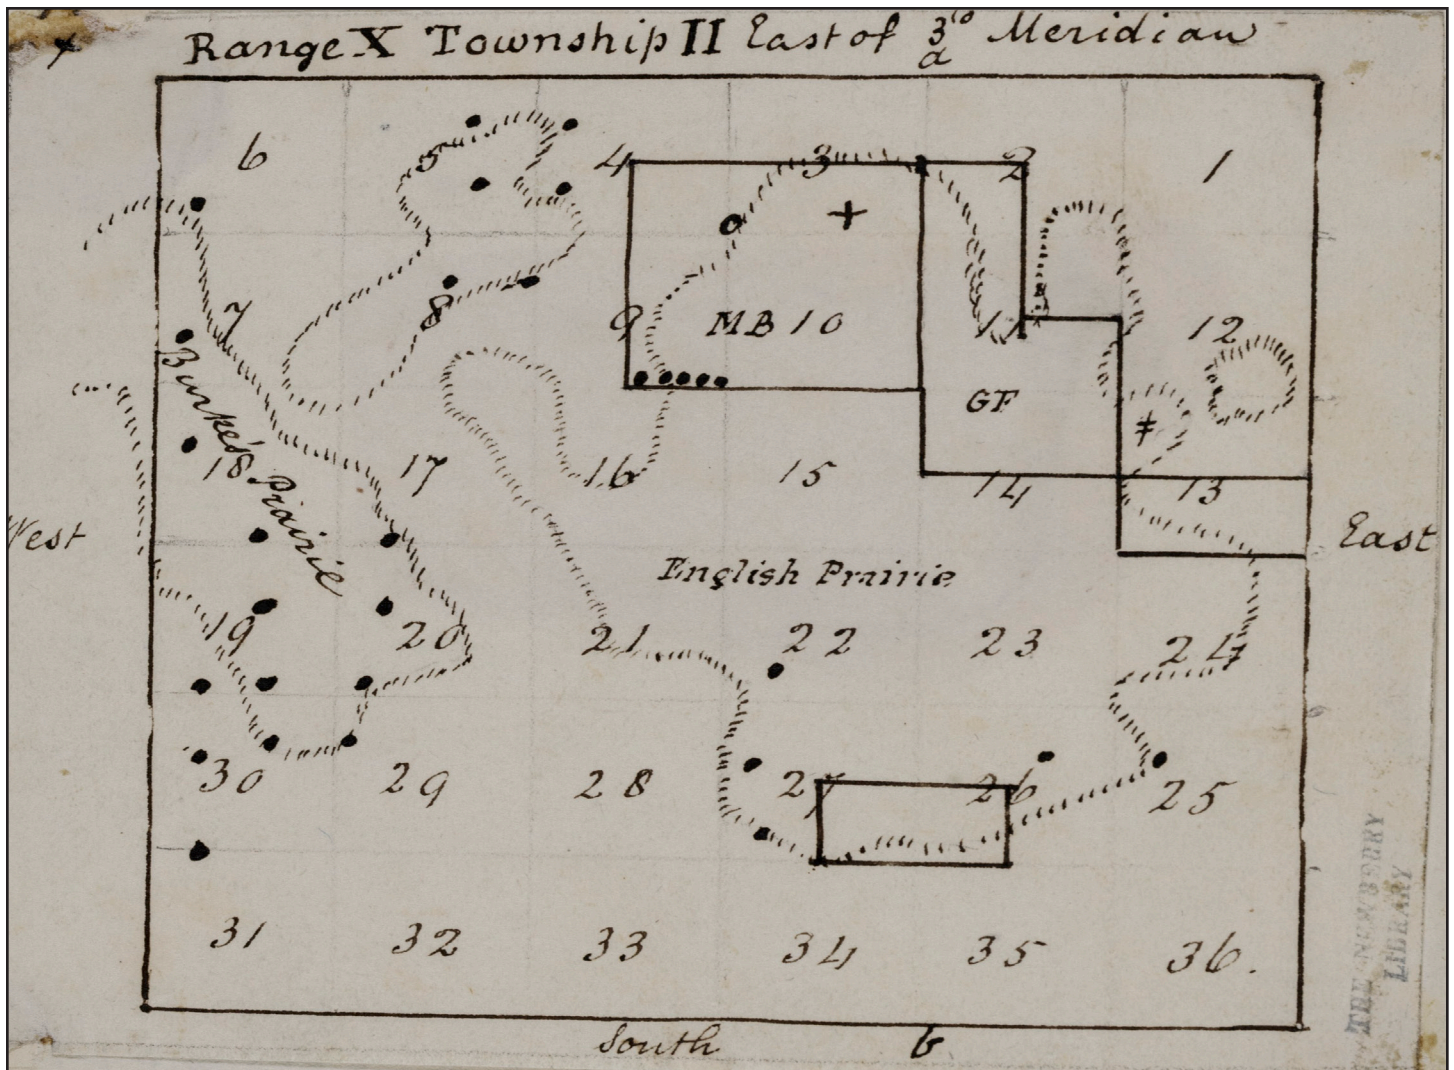 Range X Township II East of 3rd Meridian
a
6 5 4 3 2 1
7 8 9 MB 10 11 12
GF
Burke's Prairie
18 17 16 15 14 13
West East
English Prairie
19 20 21 22 23 24
30 29 28 27 26 25
31 32 33 34 35 36.
South b
THE NEWBERRY
LIBRARY